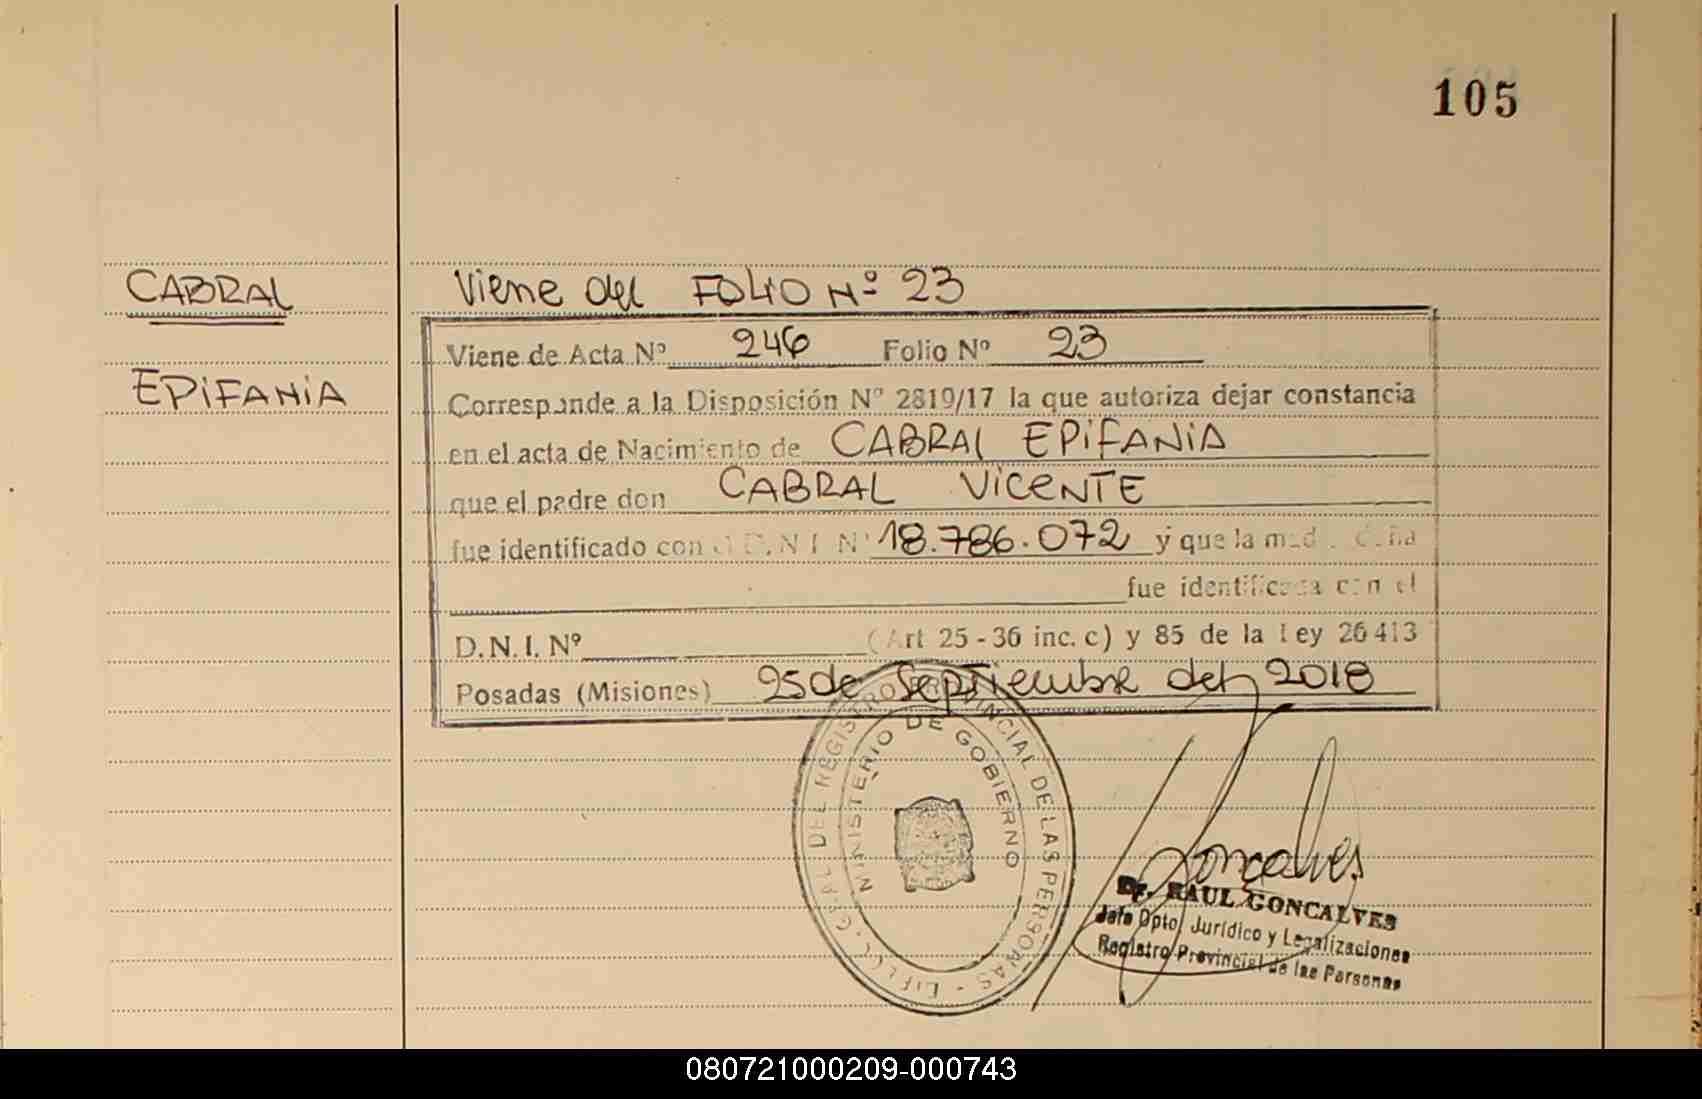 105
CABRAL
EPIFANIA
Viene del FOLIO Nº 23
Viene de Acta Nº 246 Folio Nº 23
Corresponde a la Disposición Nº 2819/17 la que autoriza dejar constancia
en el acta de Nacimiento de CABRAL EPIFANIA
que el padre don CABRAL VICENTE
fue identificado con el D.N.I. Nº 18.786.072 y que la madre doña
fue identificada con el
D.N.I. Nº (Art 25 - 36 inc. c) y 85 de la Ley 26413
Posadas (Misiones) 25 de Septiembre del 2018
GRAL DEL REGISTRO PROVINCIAL DE LAS PERSONAS
MINISTERIO DE GOBIERNO
Goncalves
Dr. RAUL GONCALVES
Jefe Dpto. Jurídico y Legalizaciones
Registro Provincial de las Personas
080721000209-000743